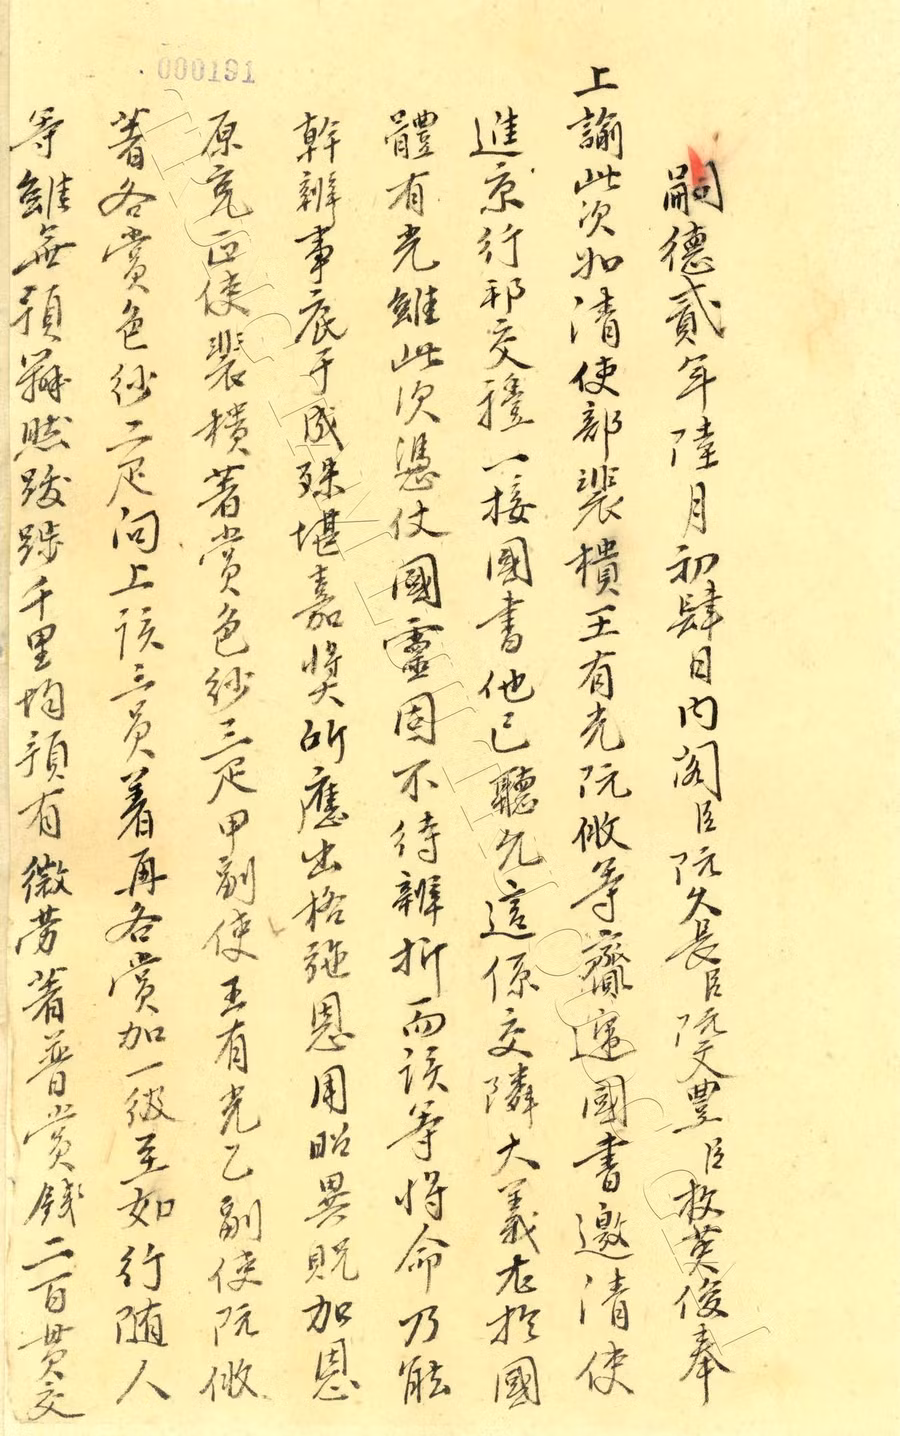 000191
嗣德貳年陸月初肆日內閣臣阮久長臣阮文豐臣枚英俊奉
上諭此次如清使部裴樻王有光阮做等齎遞國書邀清使
進京行邦交禮一接國書他已聽允這係交隣大義尤於國
體有光雖此次憑仗國靈固不待辨折而該等將命乃能
幹辦事底于成殊堪嘉奬所應出格施恩用昭異貺加恩
原充正使裴樻著賞色紗三疋甲副使王有光乙副使阮做
著各賞色紗二疋問上該三員著再各賞加一級至如行随人
等雖無預辦然跋涉千里均預有微劳著普賞錢二百貫交